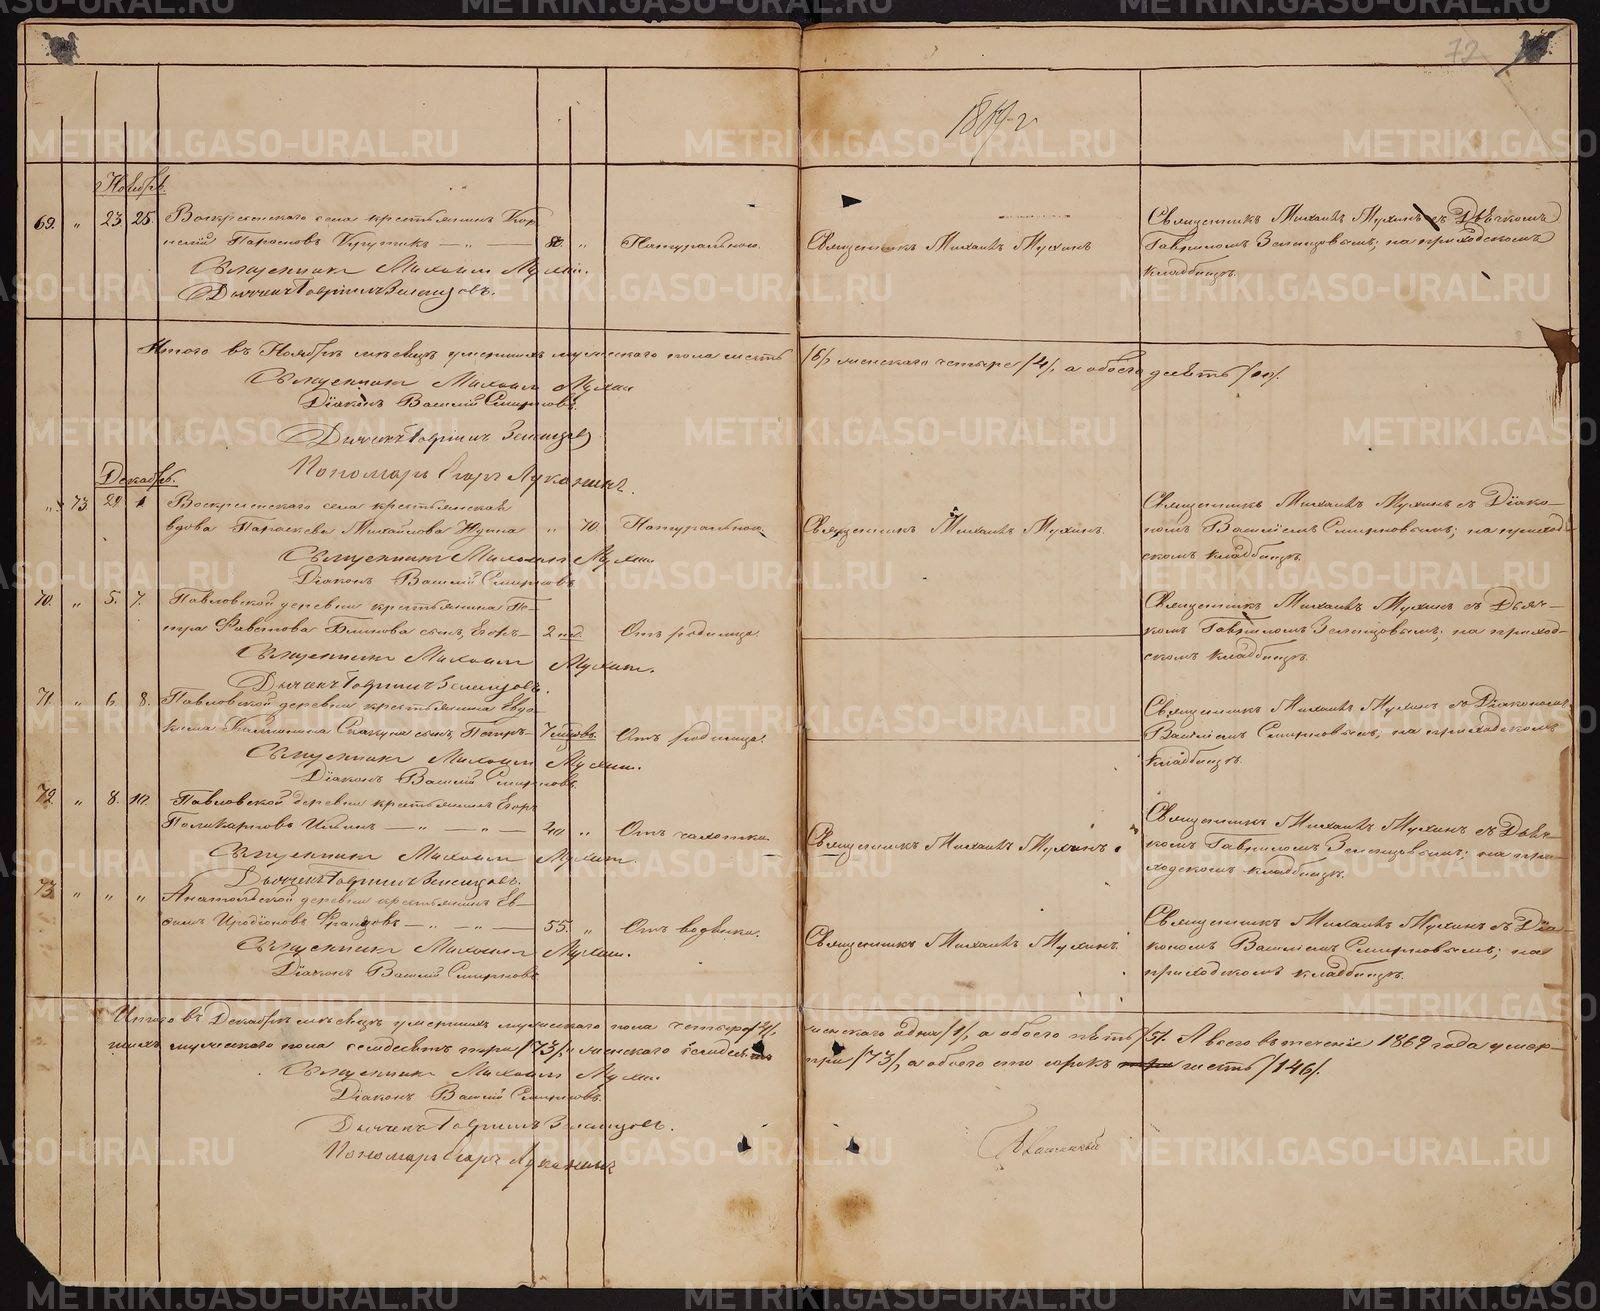 72
1869 г
Ноябрь.
69. " 23. 25. Воскресенского села крестьянинъ
Парѳеновъ — " — 80. " Натуральною. Священникъ Михаилъ Мухинъ
Священникъ Михаилъ Мухинъ съ Дьячкомъ
Гавріиломъ Зеленцовымъ; на приходскомъ
кладбищѣ.
Священникъ Михаилъ Мухин.
Дьячекъ Гавріилъ Зеленцовъ.
Итого въ Ноябрѣ мѣсяцѣ умершихъ мужескаго пола шесть /6/ женскаго четыре /4/, а обоего десять /10/.
Священникъ Михаилъ Мухин
Діаконъ Василій Смирновъ.
Дьячекъ Гавріилъ Зеленцовъ
Пономарь Егоръ Луканинъ.
Декабрь.
" 73 29 1 Воскресенского села крестьянская
вдова Параскева Михайлова " 70. Натуральною. Священникъ Михаилъ Мухинъ.
Священникъ Михаилъ Мухинъ съ Діако-
номъ Василіемъ Смирновымъ; на приход-
скомъ кладбищѣ.
Священникъ Михаилъ Мухин.
Діаконъ Василій Смирновъ
70. " 5. 7. Павловской деревни крестьянина Пе-
тра Блинова сынъ, Егоръ — 2 нд. Отъ родимца.
Священникъ Михаилъ Мухинъ съ Дьяч-
комъ Гавріиломъ Зеленцовымъ, на приход-
скомъ кладбищѣ.
Священникъ Михаилъ Мухин.
Дьячекъ Гавріилъ Зеленцовъ.
71. " 6. 8. Павловской деревни крестьянина Евдо-
кима сынъ, Петръ — Отъ родимца.
Священникъ Михаилъ Мухинъ съ Діакономъ
Василіемъ Смирновымъ, на приходскомъ
кладбищѣ.
Священникъ Михаилъ Мухин.
Діаконъ Василій Смирновъ.
72. " 8. 10. Павловской деревни крестьянинъ Егоръ
Поликарповъ Ильинъ — " — " — 40 " Отъ чахотки. Священникъ Михаилъ Мухинъ.
Священникъ Михаилъ Мухинъ съ Дьяч-
комъ Гавріиломъ Зеленцовымъ; на при-
ходскомъ кладбищѣ.
Священникъ Михаилъ Мухин.
Дьячекъ Гавріилъ Зеленцовъ.
73 " " " деревни крестьянинъ Ев-
Иродіоновъ — " — " — 55. " Отъ водянки. Священникъ Михаилъ Мухинъ.
Священникъ Михаилъ Мухинъ съ Діа-
кономъ Василіемъ Смирновымъ; на
приходскомъ кладбищѣ.
Священникъ Михаилъ Мухин.
Діаконъ Василій Смирновъ
Итого въ Декабрѣ мѣсяцѣ умершихъ мужескаго пола четыре /4/, женскаго одна /1/, а обоего пять /5/. А всего въ теченіе 1869 года умер-
шихъ мужескаго пола семдесятъ три /73/, и женскаго семдесятъ три /73/, а обоего сто сорокъ три шесть /146/.
Священникъ Михаилъ Мухин
Діаконъ Василій Смирновъ.
Дьячекъ Гавріилъ Зеленцовъ.
Пономарь Егоръ Луканинъ
METRIKI.GASO-URAL.RU